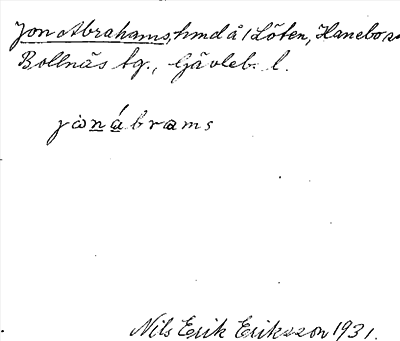 Jon Abrahams, hmd å i Löten, Hanebo sn
Bollnäs tg., Gävleb. l.
jo̊nábrams
Nils Erik Eriksson 1931.